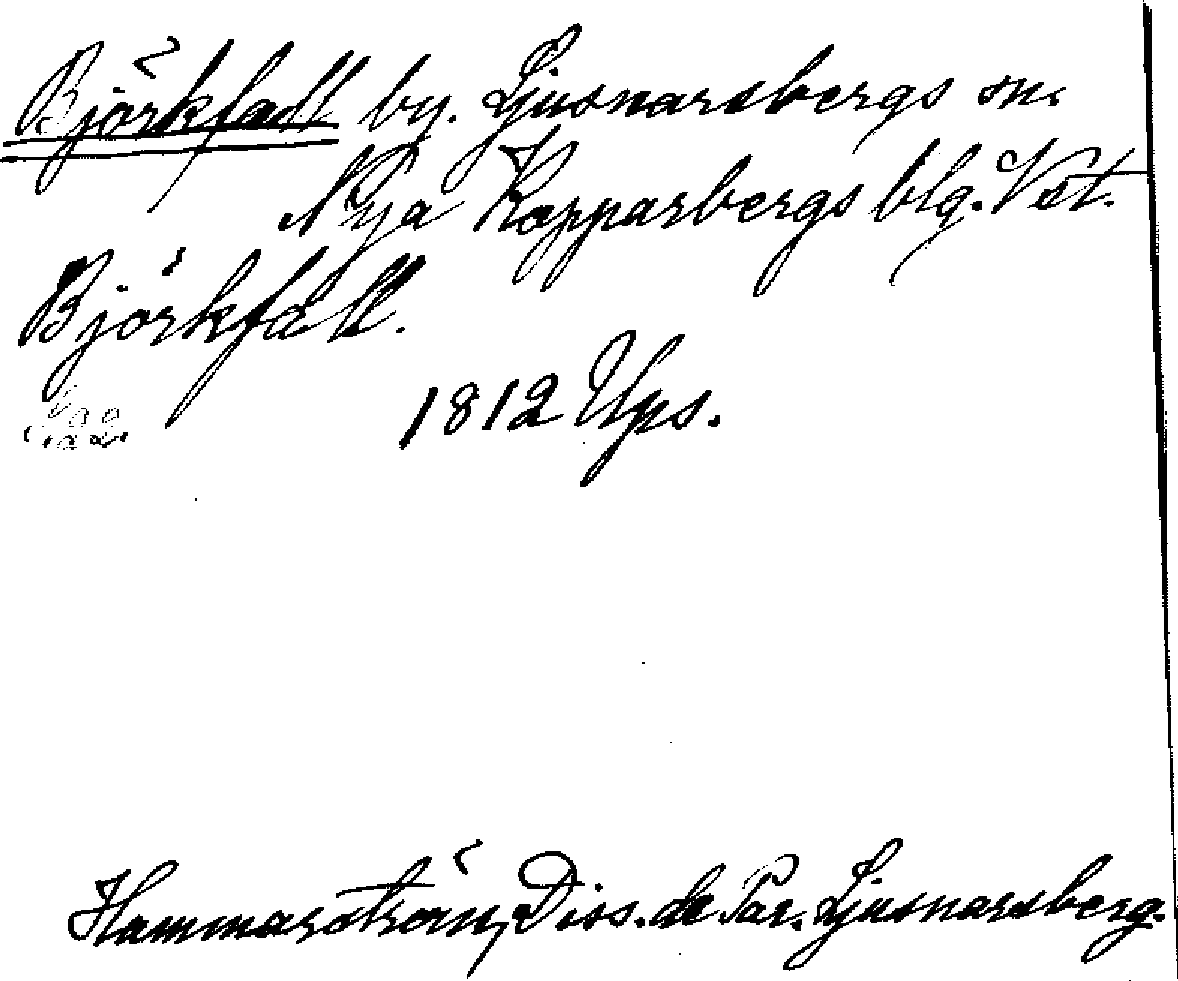 Björkfall by. Ljusnarsbergs sn.
Nya Kopparbergs blg. Vst.
Björkfall.
1812 Ups.
Hammarström, Diss. de Par. Ljusnarsberg.